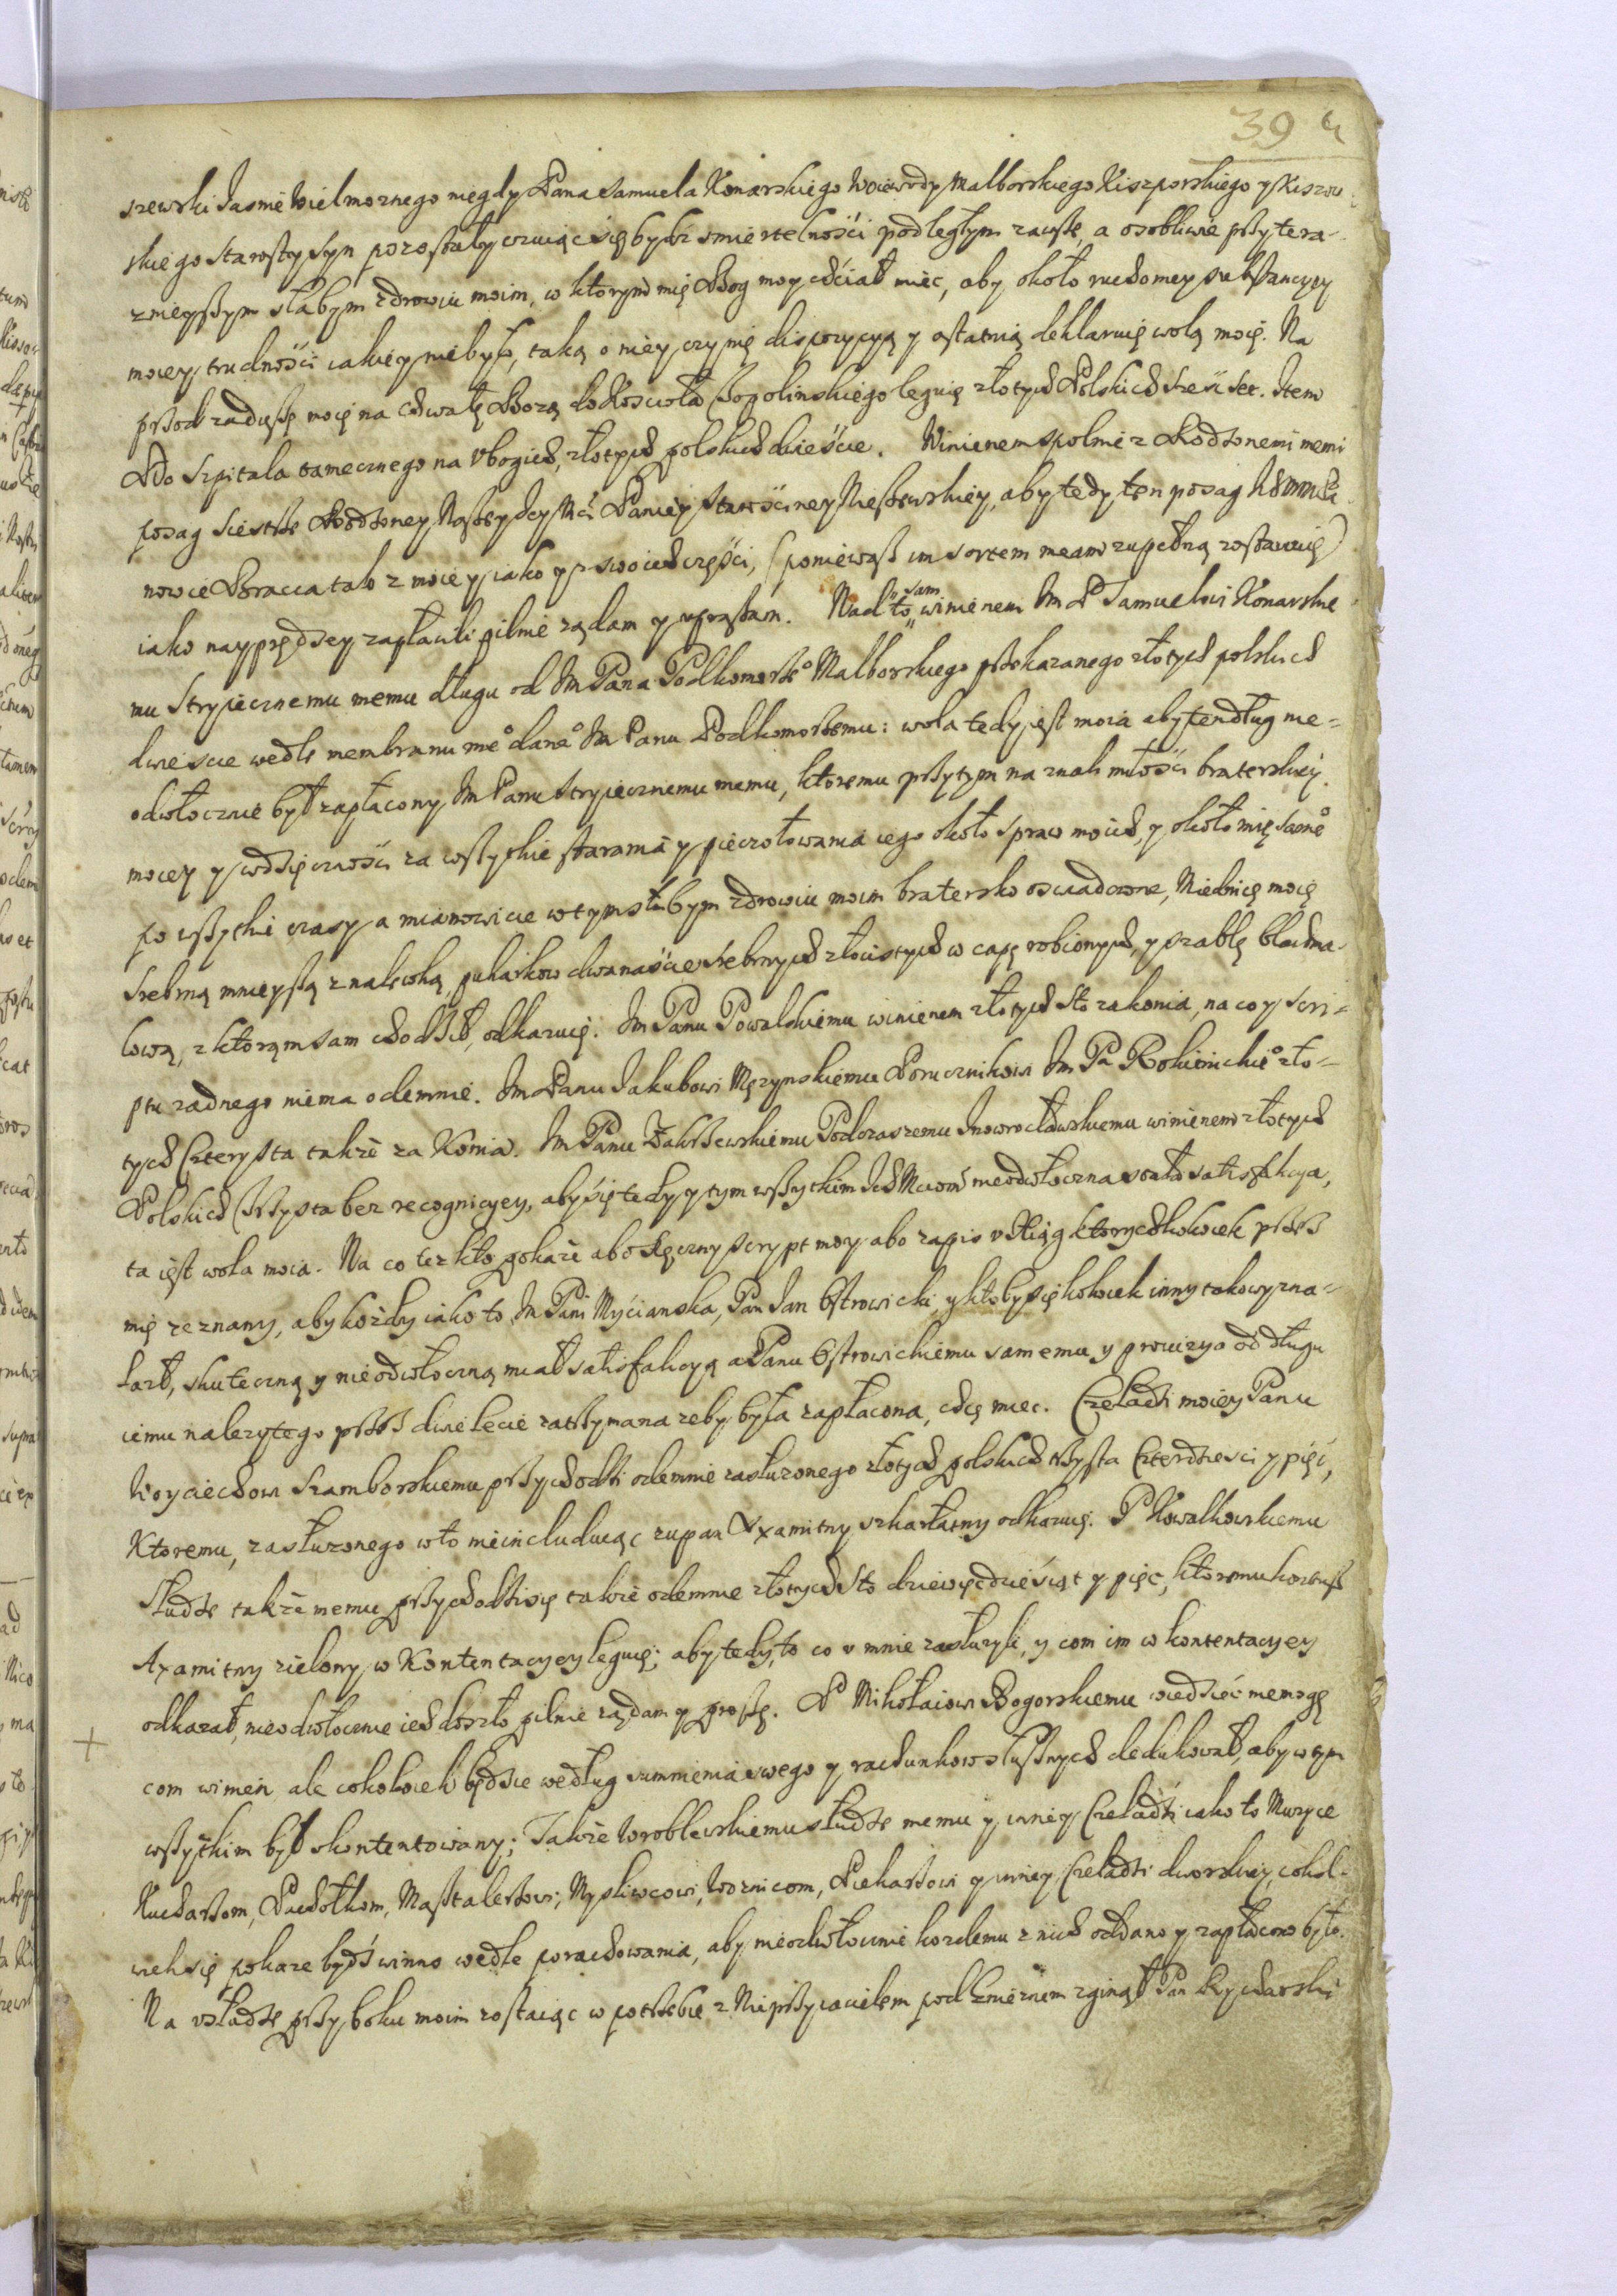 39
szewski Jasnie Wielmoznego niegdy Pana Samuela Konarskiego Woiewody Malborskiego Kiszporskiego y Kiszew
skiego Starosty Syn pozostały czuiąc się bydz smiertelności podległym zawsze, a osobliwie przy tera-
znieyszym słabym zdrowiu moim, w ktorym mię Bog moy chciał miec, aby około ruchomey substancyey
moiey trudności iakiey niebyło, taką o niey czynię dispozycyą y ostatnią deklaruię wolą moię. Na
przod za duszę moię na chwałę Bozą do Koscioła Topolinskiego leguię złotych Polskich sześć set. Item
Do Szpitala tamecznego na Vbogich, złotych polskich dwieście. Winienem spolnie z Rodzonemi memi
posag Siestrze Rodzoney Naszey Jey Mci Paniey Starościney Nieszewskiey, aby tedy ten posag
nowie Bracia tak z moiey iako y z swoich części, (ponieważ im sortem meam zupełną zostawuię)
iako nayprędzey zapłacili pilnie ządam y vpraszam. Nad to sam winienem Jm P Samuelowi Konarskie
mu Stryiecznemu memu długu od Jm Pana Podkomorzo Malborskiego przekazanego złotych polskich
dwiescie wedle membranu meo daneo Jm Panu Podkomorzemu: wola tedy jest moia aby ten dług nie=
odwłocznie był zapłacony Jm Panu Stryiecznemu memu, ktoremu przy tym na znak miłości braterskiey
moiey y wdzięczności za wszytkie starania y pieczołowania iego około spraw moich, y około mię sameo
po wszytkie czasy a mianowicie w tym słabym zdrowiu moim bratersko oswiadczone, Miednicę moię
Srebrną mnieyszą z nalewką, puharkow dwanaście srebrnych złocistych w capę robionych, y szablę blachma-
lową, z ktorąm sam chodził, odkazuię. Jm Panu Powalskiemu winienem złotych sto za konia, na co y scri=
ptu zadnego niema odemnie. Jm Panu Jakubowi Męzynskiemu Porucznikowi Jm Pa Rokicinckieo zło=
tych Czterysta takze za Konia. Jm Panu Zakrzewskiemu Podczaszemu Inowrocławskiemu winienem złotych
Polskich Trzysta bez recognicyey, aby się tedy y tym wszytkim Ich Mciom nieodwłoczna stała satisfakcya,
ta iest wola moia. Na co tez kto pokaze abo Ręczny script moy abo zapis v Xiąg ktorychkolwiek przez
mię zeznany, aby kozdy iako to Jm Pani Mycianska, Pan Jan Ostrowicki, y ktoby się kolwiek inny takowy zna=
lazł, skuteczną y nieodwłoczną miał satisfakcyą a Panu Ostrowickiemu samemu y prowizya od długu
iemu nalezytego przez dwie lecie zatrzymana zeby była zapłacona, chcę miec. Czeladzi moiey Panu
Woyciechowi Szamborskiemu przychodzi odemnie zasłuzonego złotych polskich trzysta Czterdziesci y pięć,
Ktoremu, zasłuzonego w to nieincluduiąc zupan Axamitny szkarłatny odkazuię. P Kowalkowskiemu
Słudze takze memu przychodzi się takze odemnie złotych sto dziewięcdzieśiąt y pięc, ktoremu kontusz
Axamitny zielony w Kontentacyey leguię; aby tedy to co v mnie zasłuzyli, y com im w kontentacyey
odkazał, nieodwłocznie ich doszło pilnie ządam y proszę. P Mikołaiowi Bogorskiemu wiedzieć niemogę
com winien ale cokolwiek będzie według sumnienia swego y rachunkow słusznych dedukował, aby w tym
wszytkim był skontentowany; Takze Wroblewskiemu słudze memu y inney Czeladzi iako to Muzyce
Kucharzom, Pachołkom, Masztalerzowi, Mysliwcowi, Woznicom, Piekarzowi y inney Czeladzi dworskiey, cokol-
wiek się pokaze bydź winno wedle porachowania, aby nieodwłocznie kozdemu z nich oddano y zapłacono było.
Na vsłudze przy boku moim zostaiąc w potrzebie z Nieprzyiacielem pod Gnieznem zginął Pan Rycharski